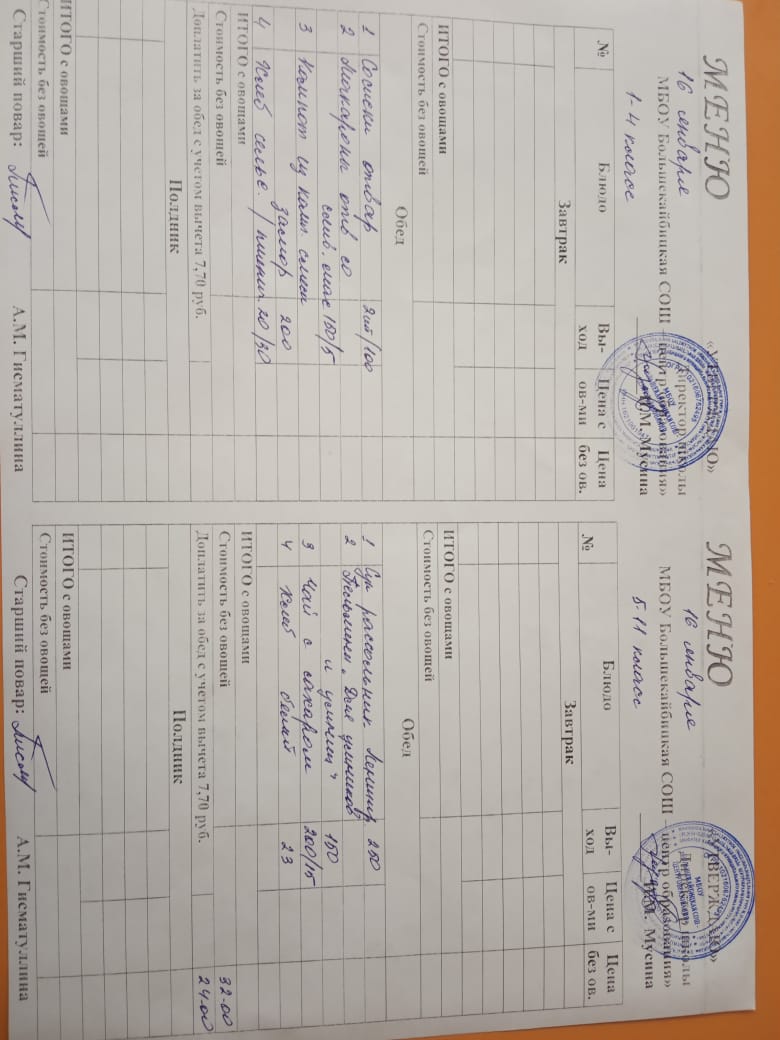 МЕНЮ
«УТВЕРЖДАЮ»
16 января
Директор школы
МБОУ Большекайбицкая СОШ – центр образования»
1-4 класс
М. Мусина
№ Блюдо Вы-ход Цена с ов-ми Цена без ов.
Завтрак
ИТОГО с овощами
Стоимость без овощей
Обед
1 Сосиски отвар 2шт/100
2 Макароны отв со
слив. масл 150/5
3 Компот из
200
4 Хлеб сельс. /пшен. 20/30
ИТОГО с овощами
Стоимость без овощей
Доплатить за обед с учетом вычета 7,70 руб.
Полдник
ИТОГО с овощами
Стоимость без овощей
Старший повар: А.М. Гисматуллина
МЕНЮ
«УТВЕРЖДАЮ»
16 января
Директор школы
МБОУ Большекайбицкая СОШ – центр образования»
5-11 класс
М. Мусина
№ Блюдо Вы-ход Цена с ов-ми Цена без ов.
Завтрак
ИТОГО с овощами
Стоимость без овощей
Обед
1 Суп рассольник Ленингр 250
2 Пельмени „Для умников
и умниц" 150
3 Чай с сахаром 200/15
4 Хлеб белый 23
ИТОГО с овощами
Стоимость без овощей 32-00
Доплатить за обед с учетом вычета 7,70 руб. 24-00
Полдник
ИТОГО с овощами
Стоимость без овощей
Старший повар: А.М. Гисматуллина